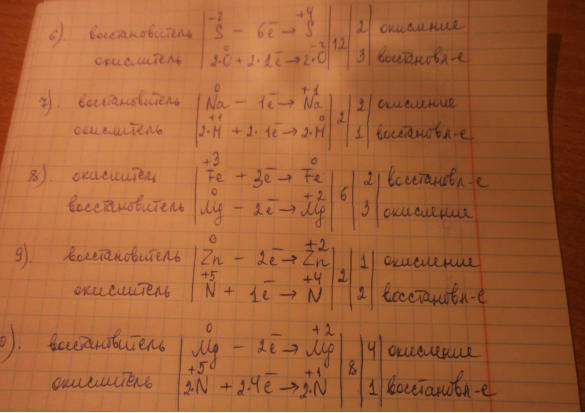 6). восстановитель | S⁻² − 6ē → S⁺⁴ | 12 | 2 | окисление
окислитель | 2·O⁰ + 2·2ē → 2·O⁻² | 3 | восстановл-е
7). восстановитель | Na⁰ − 1ē → Na⁺¹ | 2 | 2 | окисление
окислитель | 2·H⁺¹ + 2·1ē → 2·H⁰ | 1 | восстановл-е
8). окислитель | Fe⁺³ + 3ē → Fe⁰ | 6 | 2 | восстановл-е
восстановитель | Mg⁰ − 2ē → Mg⁺² | 3 | окисление
9). восстановитель | Zn⁰ − 2ē → Zn⁺² | 2 | 1 | окисление
окислитель | N⁺⁵ + 1ē → N⁺⁴ | 2 | восстановл-е
0). восстановитель | Mg⁰ − 2ē → Mg⁺² | 8 | 4 | окисление
окислитель | 2·N⁺⁵ + 2·4ē → 2·N⁺¹ | 1 | восстановл-е